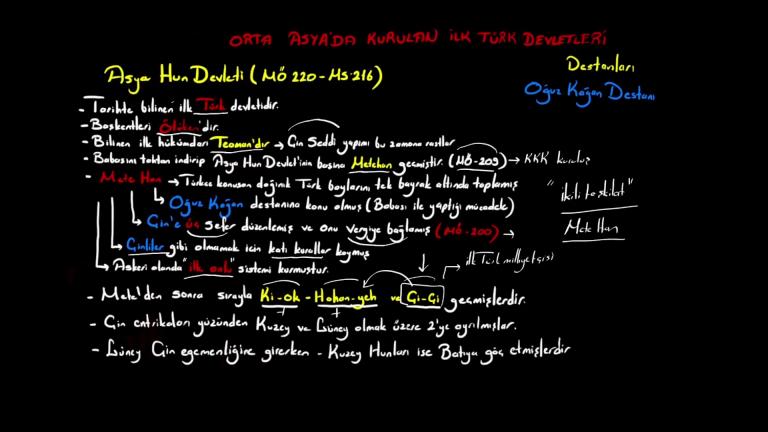 ORTA ASYA'DA KURULAN İLK TÜRK DEVLETLERİ
Asya Hun Devleti (MÖ 220 - MS: 216)
Destanları
Oğuz Kağan Destanı
- Tarihte bilinen ilk Türk devletidir.
- Başkentleri Ötüken'dir.
- Bilinen ilk hükümdarı Teoman'dır → Çin Seddi yapımı bu zamana rastlar
- Babasını tahttan indirip Asya Hun Devlet'inin başına Metehan geçmiştir. (MÖ-209) → KKK kuruluş
- Mete Han → Türkçe konuşan dağınık Türk boylarını tek bayrak altında toplamış
"ikili teşkilat"
Oğuz Kağan destanına konu olmuş (Babası ile yaptığı mücadele)
Mete Han
Çin'e üç sefer düzenlemiş ve onu vergiye bağlamış (MÖ-200) →
Çinliler gibi olmamak için katı kurallar koymuş
Askeri alanda "ilk onlu" sistemi kurmuştur.
ilk Türk milliyetçisi
- Mete'den sonra sırayla Ki-ok - Hohan-yeh ve Çi-Çi geçmişlerdir.
- Çin entrikaları yüzünden Kuzey ve Güney olmak üzere 2'ye ayrılmışlar.
- Güney Çin egemenliğine girerken - Kuzey Hunları ise Batıya göç etmişlerdir